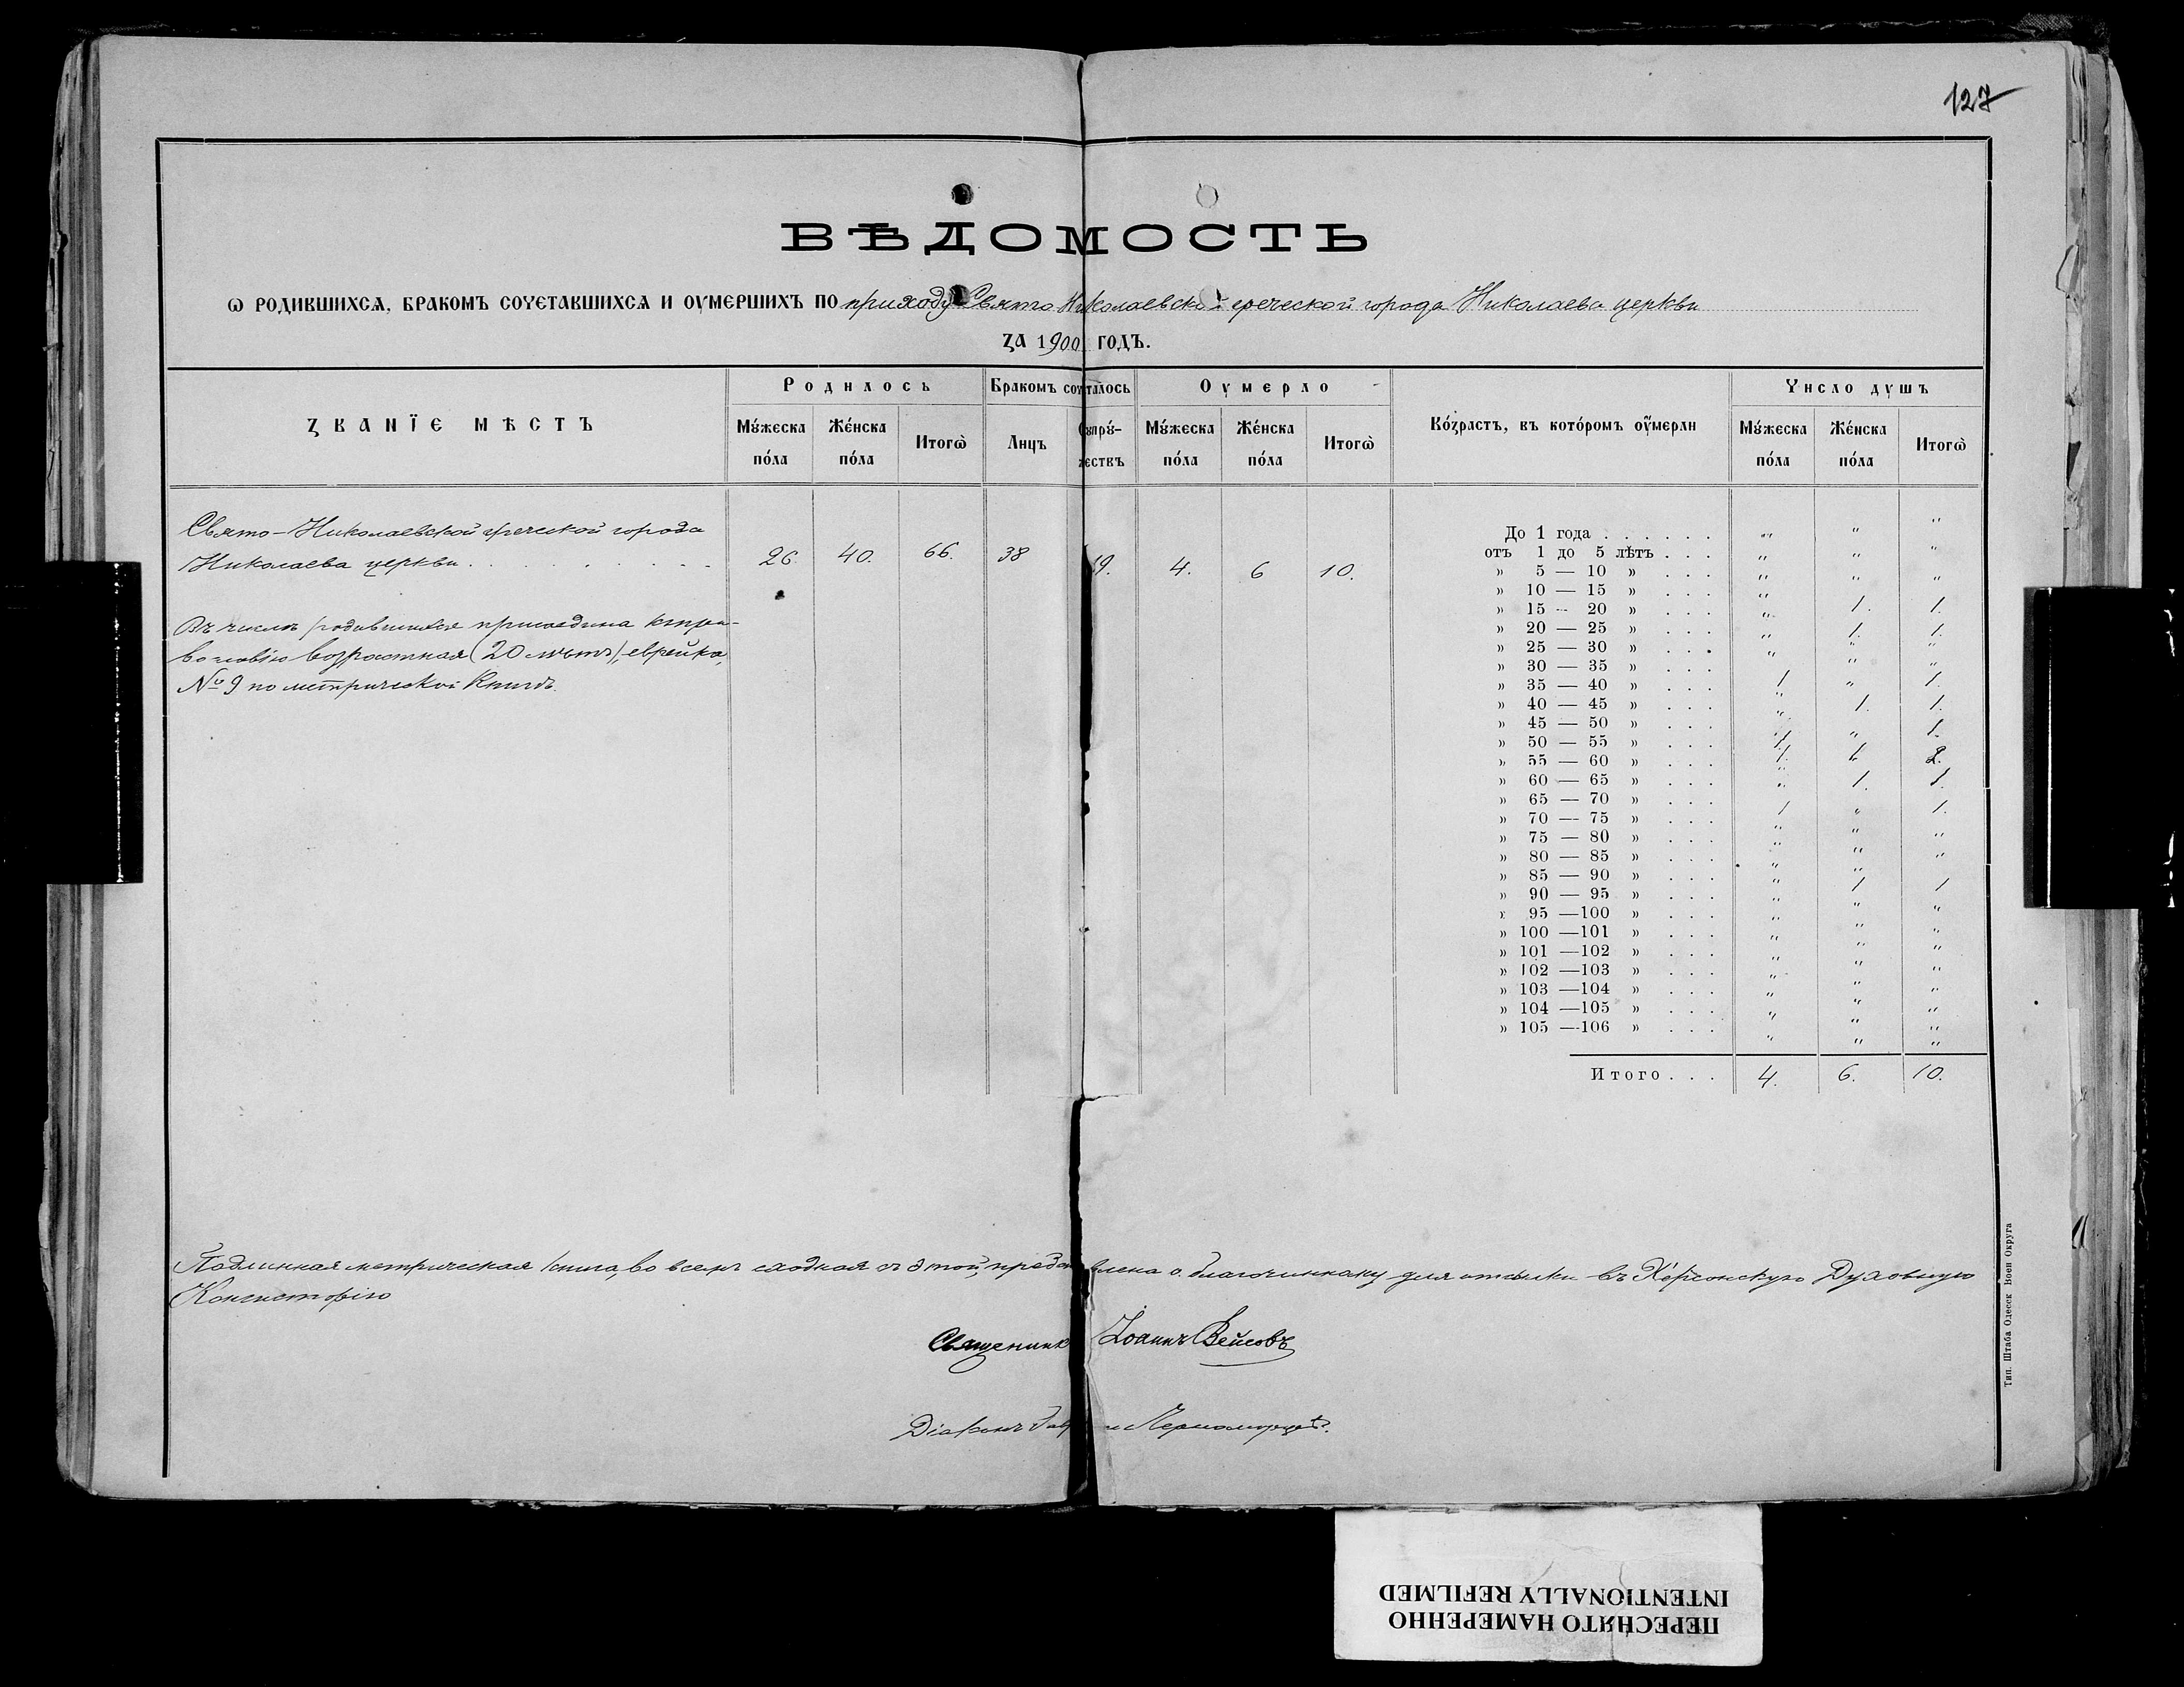 127
ВѢДОМОСТЬ
Ѡ РОДИВШИХСѦ, БРАКОМЪ СОЧЕТАВШИХСѦ И ОУМЕРШИХЪ ПО приходу Свято Николаевской греческой города Николаева церкви
ЗА 1900 ГОДЪ.
ЗВАНЇЕ МѢСТЪ
Родилось
Бракомъ сочталось
Оумерло
Во́зрастъ, въ кото́ромъ оу҆мерли
Число душъ
Му́жеска по́ла Же́нска по́ла Итогѡ̀
Лицъ Супру́жествъ
Му́жеска по́ла Же́нска по́ла Итогѡ̀
Му́жеска по́ла Же́нска по́ла Итогѡ̀
Свято-Николаевской греческой города
Николаева церкви . . . . . . . . . 26. 40. 66. 38 19. 4. 6 10.
Въ числѣ родившихся присоедина къ пра-
вославію возрастная (20 лѣтъ), еврейка,
№ 9 по метрической книгѣ.
До 1 года . . . . . . " " "
отъ 1 до 5 лѣтъ . . . " " "
» 5 — 10 » . . . " " "
» 10 — 15 » . . .
» 15 — 20 » . . . " 1. 1.
» 20 — 25 » . . . " 1. 1.
» 25 — 30 » . . . " " "
» 30 — 35 » . . . " " "
» 35 — 40 » . . . 1 " 1.
» 40 — 45 » . . . " 1. 1.
» 45 — 50 » . . .
» 50 — 55 » . . . 1. " 1.
» 55 — 60 » . . . 1. 1. 2.
» 60 — 65 » . . . " 1. 1.
» 65 — 70 » . . .
» 70 — 75 » . . . 1 " 1.
» 75 — 80 » . . . " " "
» 80 — 85 » . . . " " "
» 85 — 90 » . . . " "
» 90 — 95 » . . . " 1 1
» 95 —100 » . . . " " "
» 100 —101 » . . . " " "
» 101 —102 » . . . " " "
» 102 —103 » . . . " " "
» 103 —104 » . . . " " "
» 104 —105 » . . . " " "
» 105 —106 » . . . " " "
Итого . . . 4. 6. 10.
Подлинная метрическая книга, во всемъ сходная съ этой, представлена о. благочинному для отсылки въ Херсонскую Духовную
Консисторію
Священникъ Іоаннъ Вейсовъ
Діаконъ
Тип. Штаба Одесск Воен Округа
ПЕРЕСНЯТО НАМЕРЕННО
INTENTIONALLY REFILMED